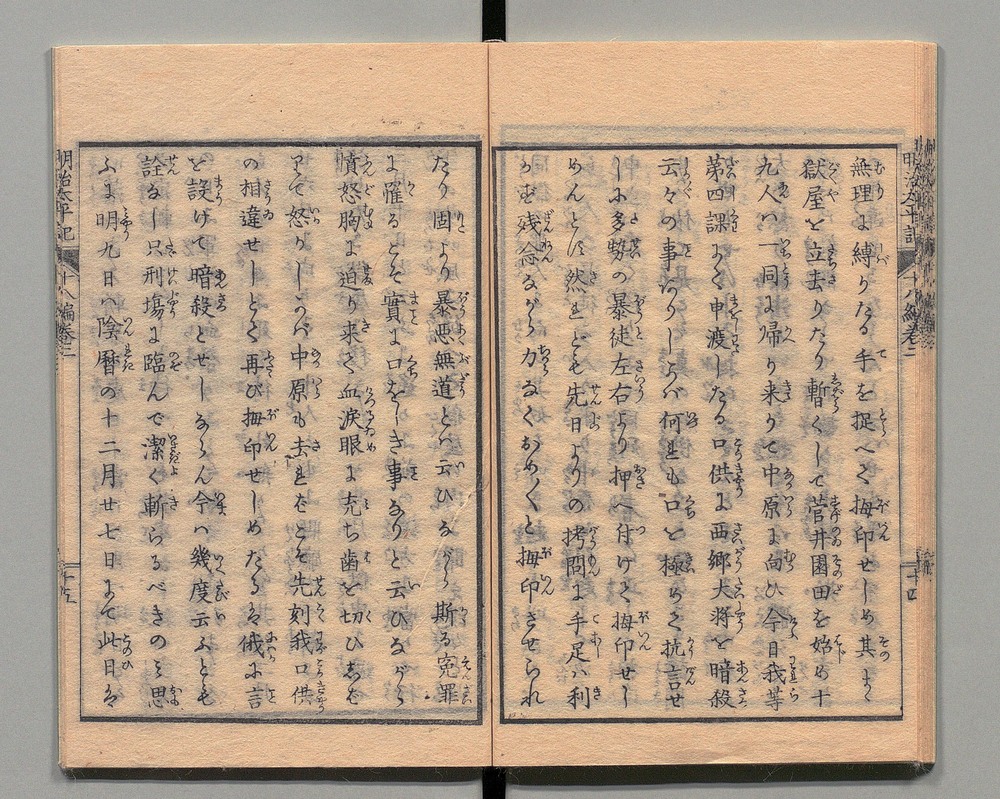 無理に縛りたる手を捉へて拇印せしめ其まゝ
獄屋を立去りたり暫くして菅井園田を始め十
九人ハ一同に帰り来りて中原に向ひ今日我等
第四課にて申渡したる口供に西郷大将を暗殺
云々の事ありしかバ何れも口を極めて抗言せ
しに多勢の暴徒左右より押へ付けて拇印せし
めんとす然れども先日よりの拷問に手足ハ利
かず残念ながら力なくおめ〳〵と拇印させられ
たり固より暴悪無道とハ云ひながら斯る寃罪
に罹るとは實に口をしき事なりと云ひながら
憤怒胸に迫り来て血涙眼に充ち歯を切ひしを
りて怒りしかバ中原も去れバこそ先刻我口供
の相違せしとて再び拇印せしめたるは俄に言
を設けて暗殺とせしならん今ハ幾度云ふとも
詮なし只刑場に臨んで潔く斬らるべきのミ思
ふに明九日ハ陰暦の十二月廿七日にて此日は
明治太平記 十八編巻之二 十四
明治太平記 十八編巻之二 十五